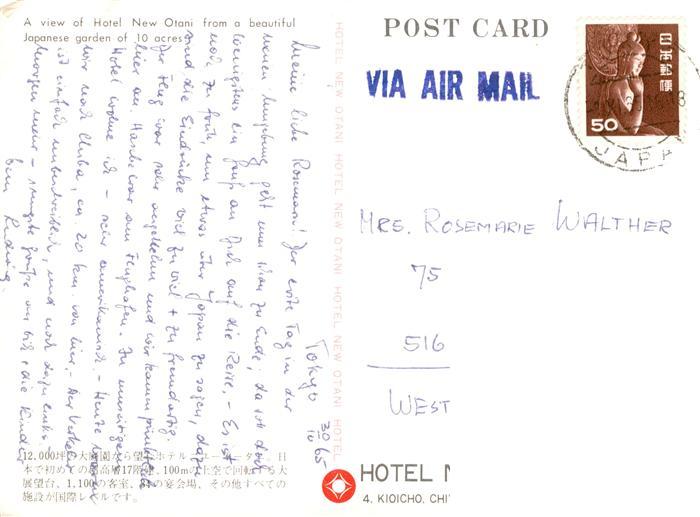 A view of Hotel New Otani from a beautiful
Japanese garden of 10 acres
Tokyo 30/10 65
Meine liebe Rosemarie! Der erste Tag in der
neuen Umgebung geht nun schon zu Ende, da soll doch
wenigstens ein Gruß an Dich auf die Reise. – Es ist
noch zu früh, um etwas über Japan zu sagen, dazu
sind die Eindrücke viel zu viel + zu fremdartig.
Der Flug war sehr angenehm und wir kamen pünktlich
hier an. Harke war am Flughafen. In unseitigen
Hotel wohne ich – sehr amerikanisch. – Heute
wir nach Chiba, ca. 20 km. von hier. – Der Verkehr
ist einfach unbeschreiblich, und noch dazu links –
Morgen mehr – Grüße an Dich + die Kinder
Dein
12,000坪の大庭園から望むホテルニューオータニ。日
本で初めての超高層17階建、100mの上空で回転する大
展望台、1,100の客室、大小宴会場、その他すべての
施設が国際レベルです。
HOTEL NEW OTANI HOTEL NEW OTANI HOTEL NEW OTANI HOTEL NEW OTANI HOTEL
POST CARD
VIA AIR MAIL
日本郵便
50
JAPA
MRS. ROSEMARIE WALTHER
75
516
WEST
HOTEL N
4, KIOICHO, CHI